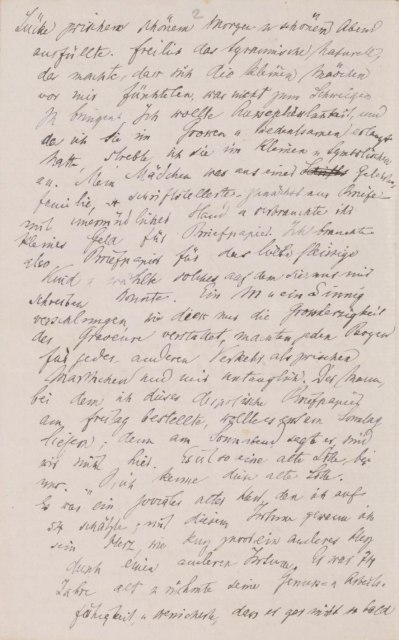 2
Lücke zwischen schönem Morgen u schönem Abend
ausfüllte. freilich das tyrannische Naturell,
das machte, dass sich die kleinen Mädchen
vor mir fürchteten, was nicht zum Schweigen
zu bringen. Ich wollte
da ich sie im Grossen u bedeutsamen
hatte strebte ich sie im kleinen u Symbolischen
an. Mein Mädchen war aus einer Gelehrten
familie, schriftstellerte
mit unermüdlicher Hand u verbrauchte ihr
kleines Geld für Briefpapier. Ich brauchte
also Briefpapier für das liebe fleissige
Kind u wählte solches auf dem sie nur mir
schreiben konnte. Ein M u ein
verschlungen die Grossherzigkeit
des Graveurs verstattet, machten jeden Bogen
für jeden anderen Verkehr als zwischen
Marthchen und mir untauglich. Der Mann,
bei dem ich dieses despotische Briefpapier
am Freitag bestellte, wollte es erst am Sonntag
liefern; denn am Sonnabend sagt er, sind
wir nicht hier. Es ist so eine alte Sitte, bei
uns. Ich kenne diese alte Sitte.
Es war ein altes den ich auf
schätzte; mit diesem Irrtum gewann ich
sein Herz, wie ein anderes Herz
durch einen anderen Irrtum. Es war
Jahre alt u rühmte seine Genuss- u Arbeits-
fähigkeit, u versicherte, dass er gar nicht so bald